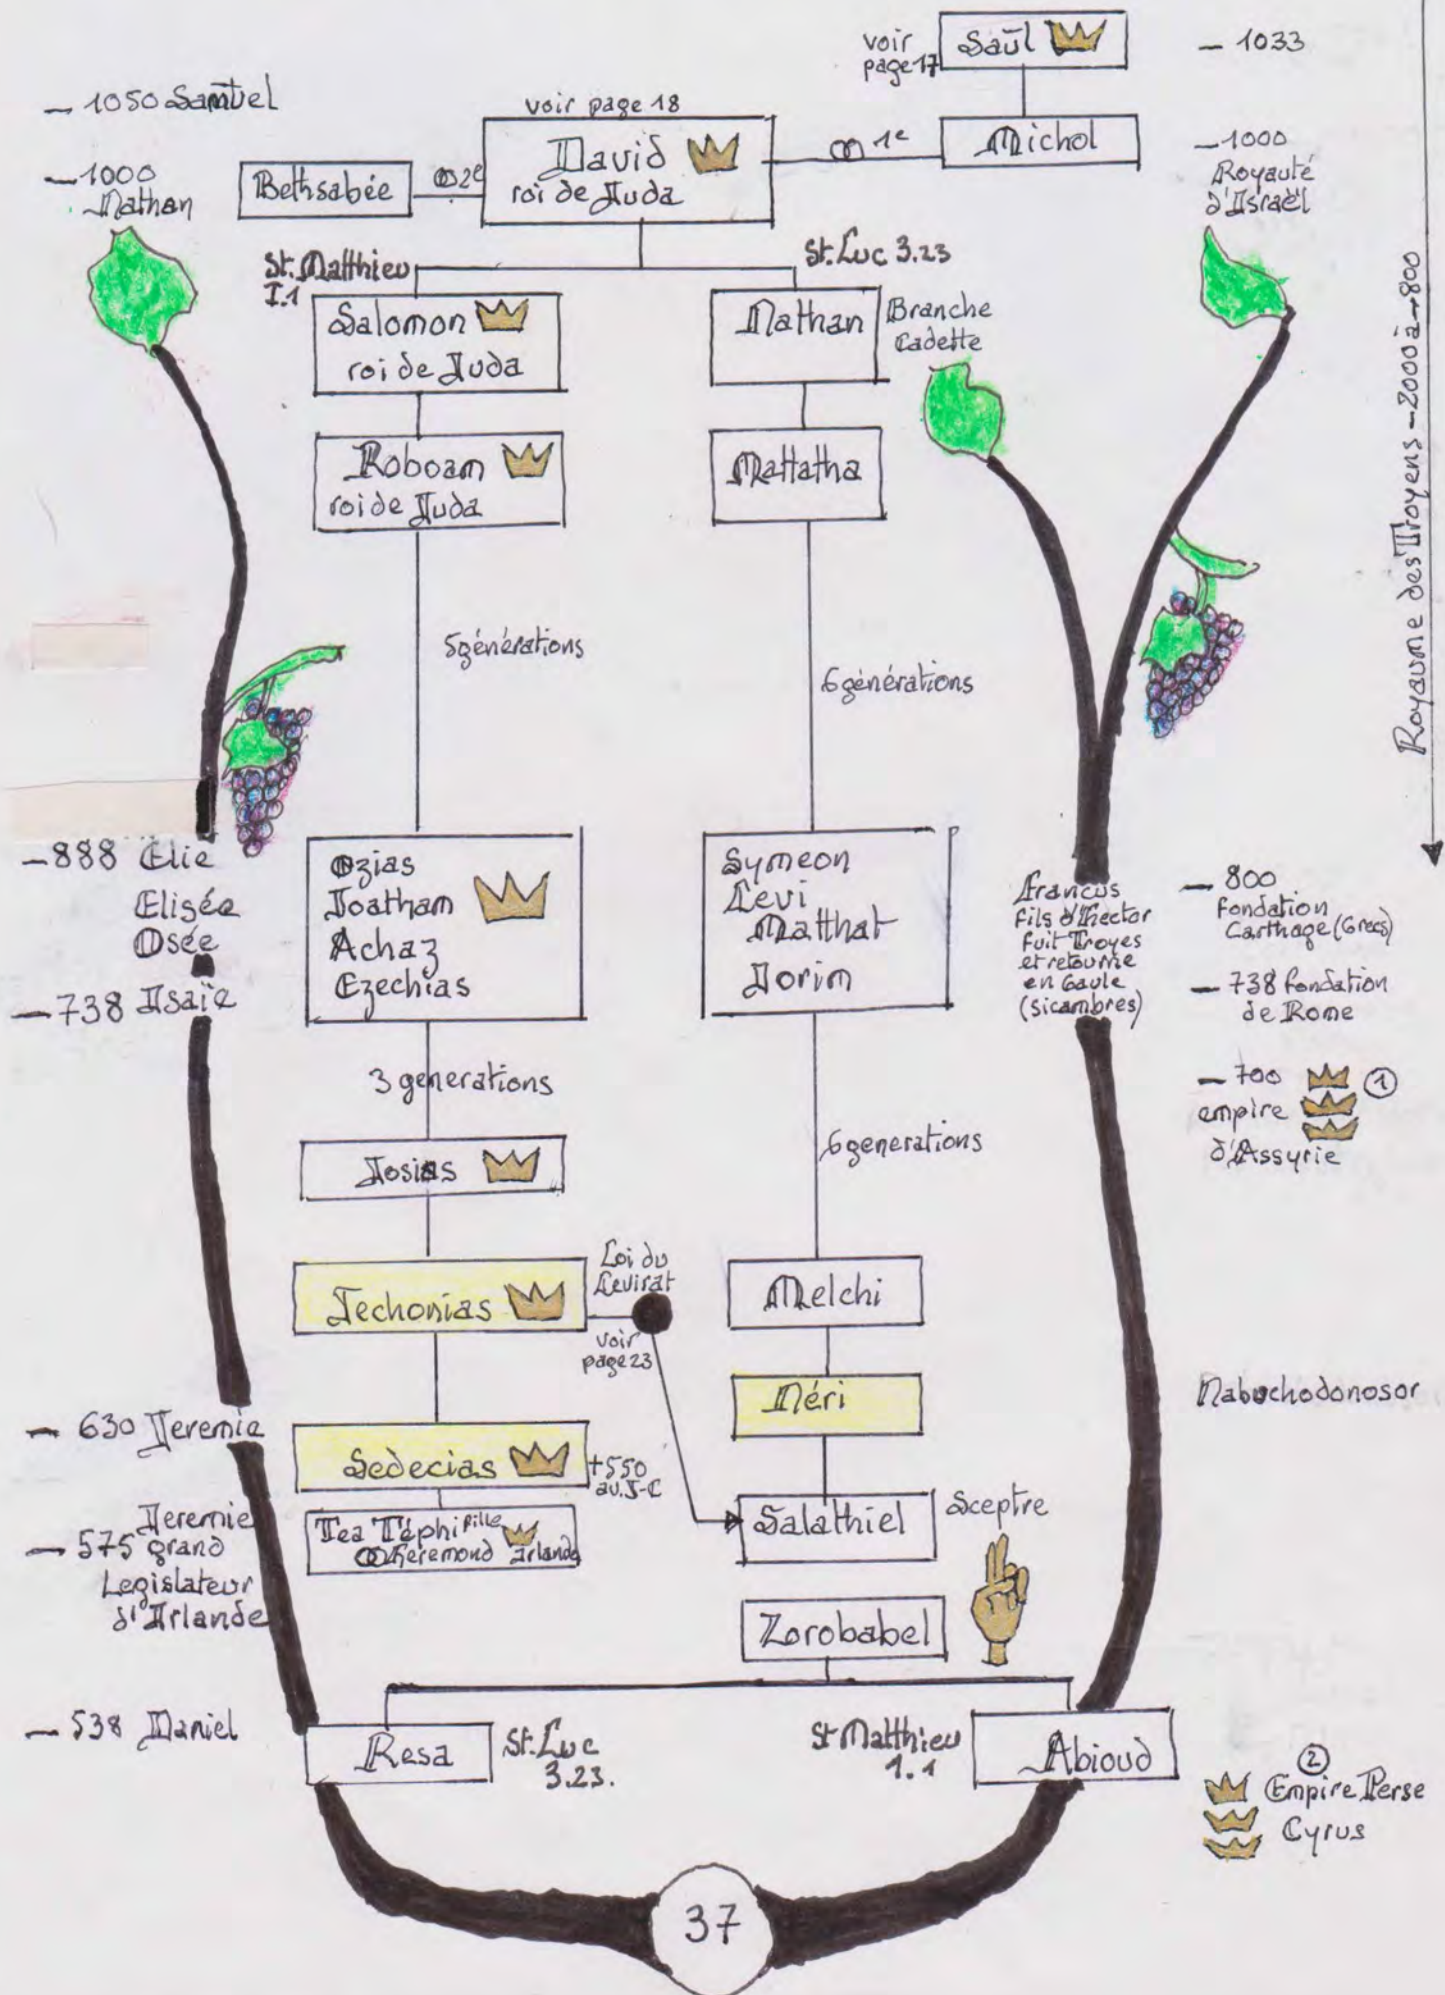 voir
page 17
Saül
— 1033
— 1050 Samuel
voir page 18
David
roi de Juda
1e
Michol
— 1000
Royauté
d'Israël
— 1000
Nathan
Bethsabée
2e
St. Matthieu
I.1
St. Luc 3.23
Salomon
roi de Juda
Nathan
Branche
Cadette
Roboam
roi de Juda
Mattatha
Royaume des Troyens -2000 à -800
5 générations
6 générations
— 888 Elie
Elisée
Osée
— 738 Isaïe
Ozias
Joatham
Achaz
Ezechias
Symeon
Levi
Matthat
Jorim
Francus
fils d'Hector
fuit Troyes
et retourne
en Gaule
(Sicambres)
— 800
fondation
Carthage (Grecs)
— 738 fondation
de Rome
— 700 1
empire
d'Assyrie
3 generations
6 generations
Josias
Jechonias
Loi du
Levirat
voir
page 23
Melchi
Néri
Nabuchodonosor
— 630 Jeremie
Sedecias
+550
av. J-C
Jeremie
— 575 grand
Legislateur
d'Irlande
Tea Téphi fille
Heremond Irlande
Salathiel
Sceptre
Zorobabel
— 538 Daniel
Resa
St. Luc
3.23.
St Matthieu
1.1
Abioud
2
Empire Perse
Cyrus
37